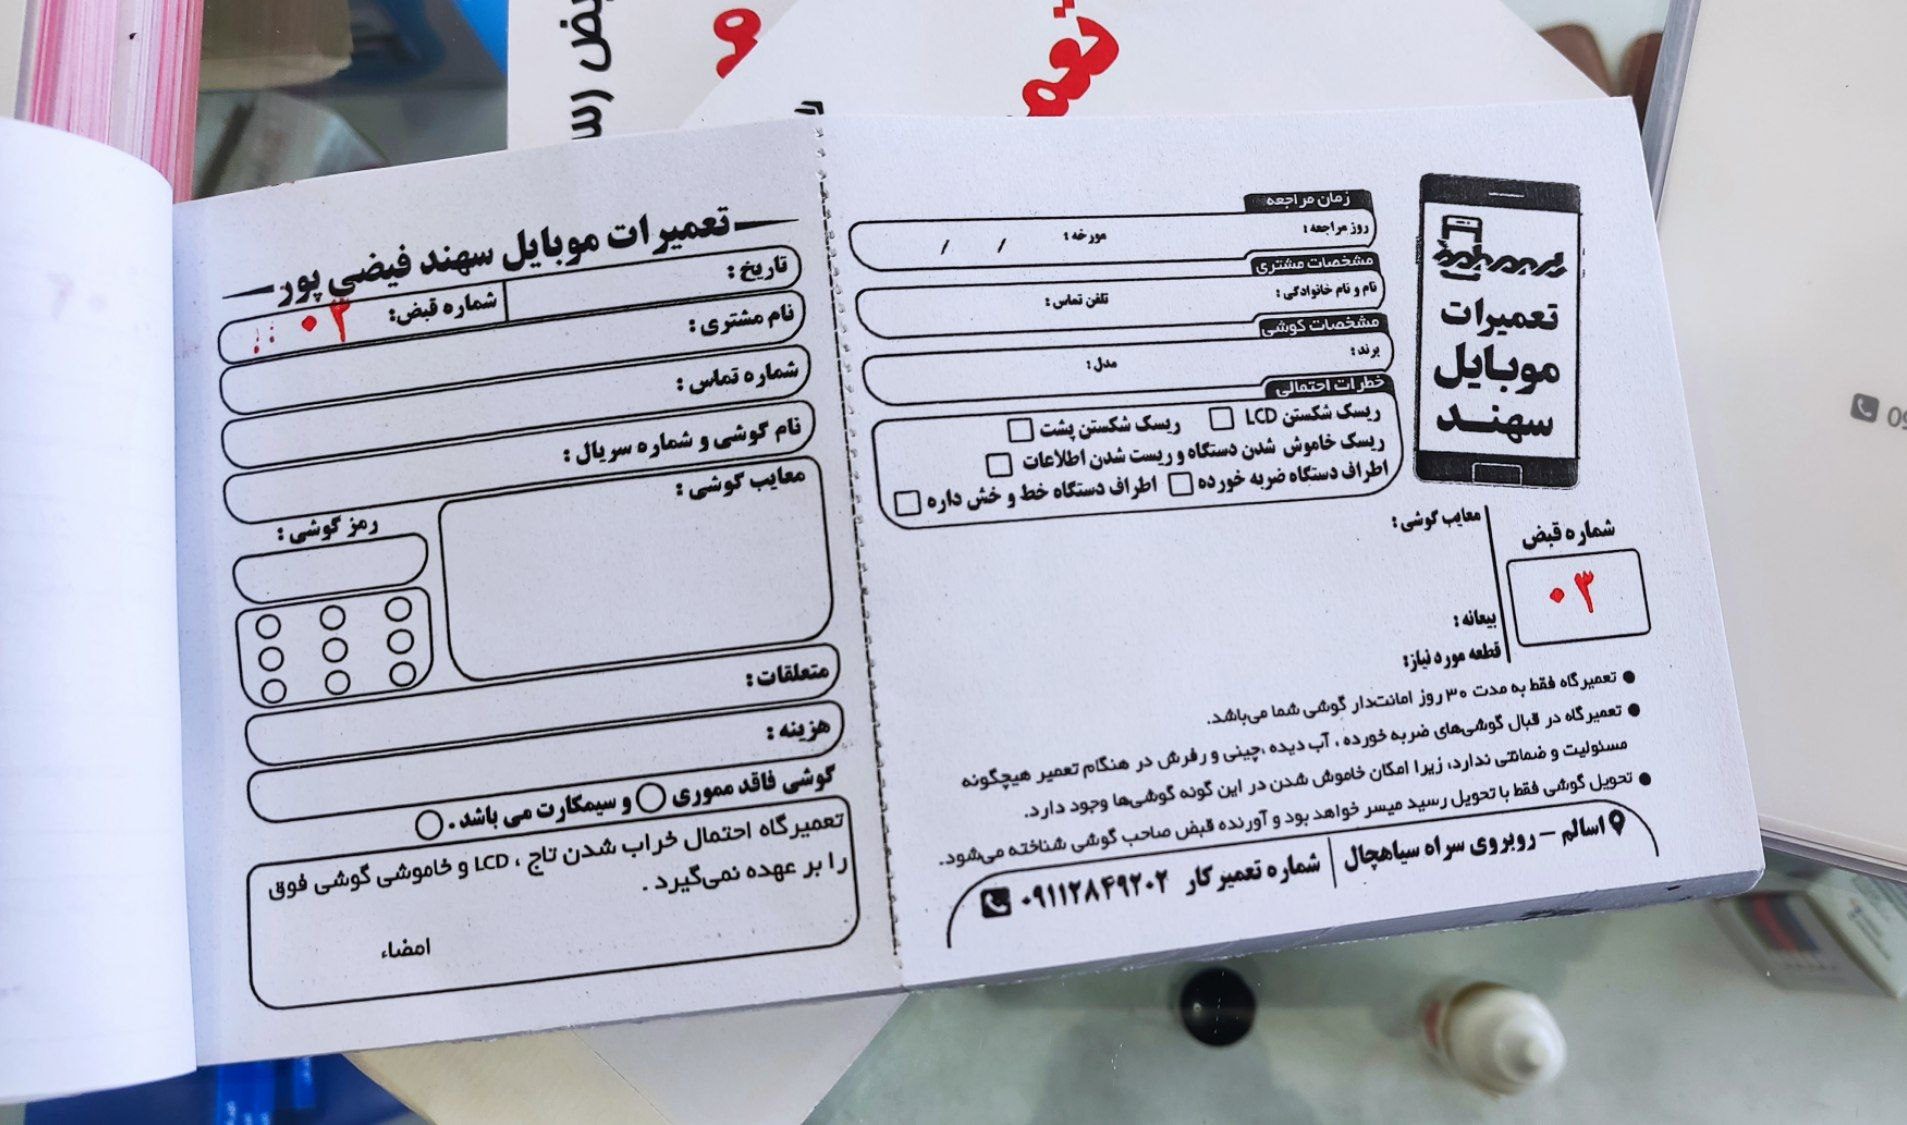 تعمیرات موبایل سهند فیضی پور
تاریخ :
شماره قبض: ۰۳
نام مشتری :
شماره تماس :
نام گوشی و شماره سریال :
معایب گوشی :
رمز گوشی :
متعلقات :
هزینه :
گوشی فاقد مموری و سیمکارت می باشد .
تعمیرگاه احتمال خراب شدن تاچ ، LCD و خاموشی گوشی فوق
را بر عهده نمی‌گیرد .
امضاء
زمان مراجعه
روز مراجعه : مورخه : / /
مشخصات مشتری
نام و نام خانوادگی : تلفن تماس :
مشخصات گوشی
برند : مدل :
خطرات احتمالی
ریسک شکستن LCD ریسک شکستن پشت
ریسک خاموش شدن دستگاه و ریست شدن اطلاعات
اطراف دستگاه ضربه خورده اطراف دستگاه خط و خش داره
تعمیرات
موبایل
سهند
شماره قبض
۰۳
معایب گوشی :
بیعانه :
قطعه مورد نیاز:
تعمیرگاه فقط به مدت ۳۰ روز امانت‌دار گوشی شما می‌باشد.
تعمیرگاه در قبال گوشی‌های ضربه خورده ، آب دیده ،چینی و رفرش در هنگام تعمیر هیچگونه
مسئولیت و ضمانتی ندارد، زیرا امکان خاموش شدن در این گونه گوشی‌ها وجود دارد.
تحویل گوشی فقط با تحویل رسید میسر خواهد بود و آورنده قبض صاحب گوشی شناخته می‌شود.
اسالم – روبروی سراه سیاهچال شماره تعمیرکار ۰۹۱۱۲۸۴۹۲۰۲